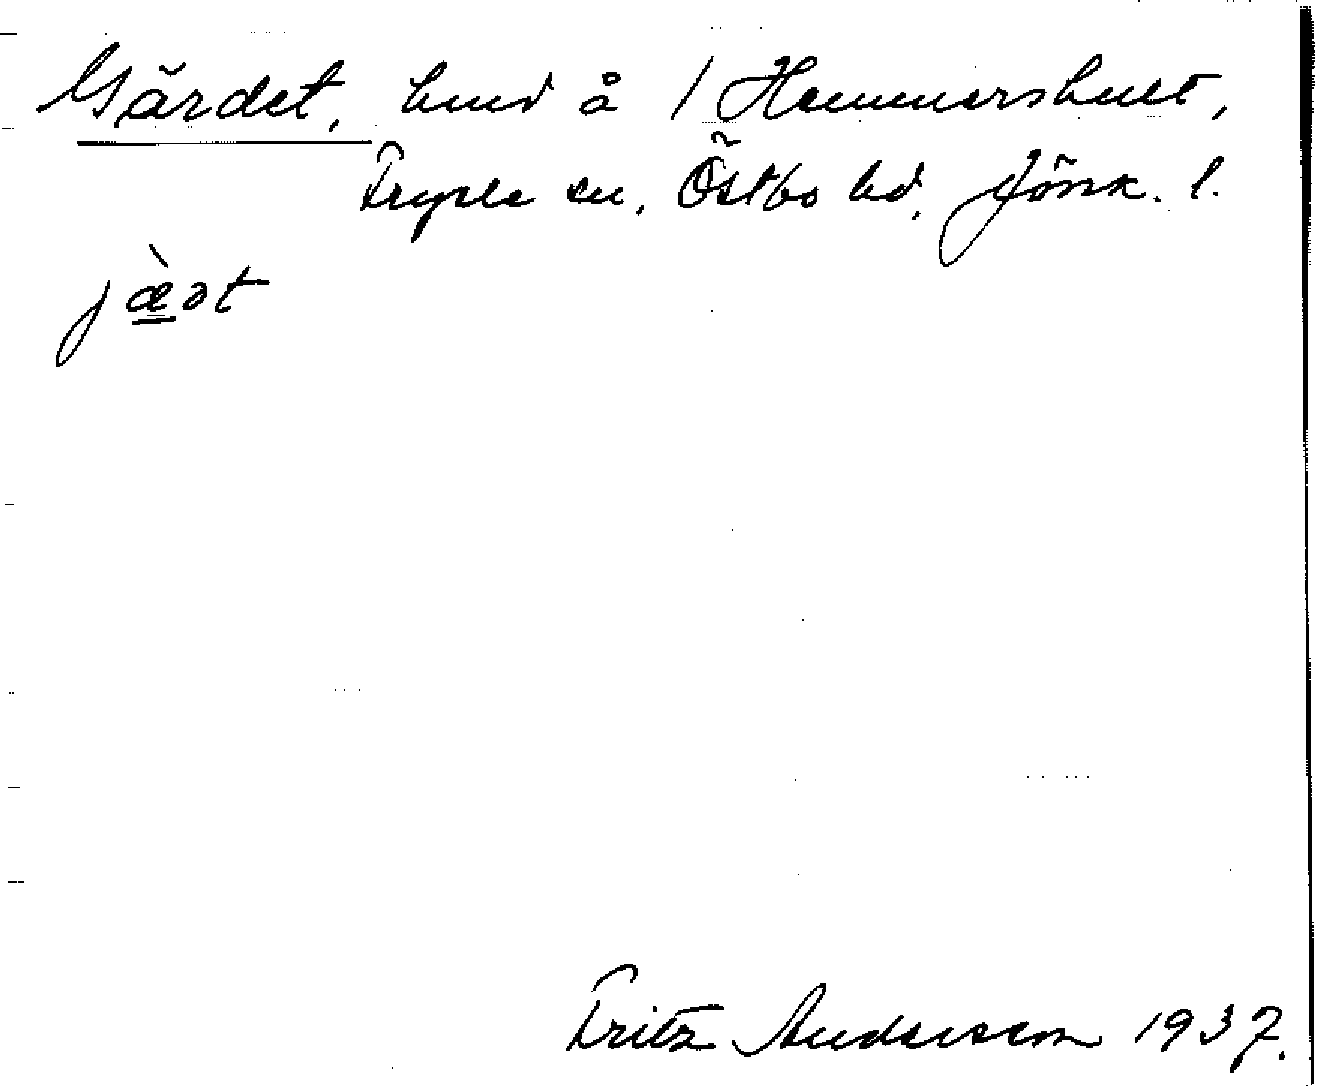 Gärdet, hmd å 1 Hammarshult,
Fryele sn, Östbo hd, Jönk. l.
jæ̀ət
Fritz Andersson 1937.